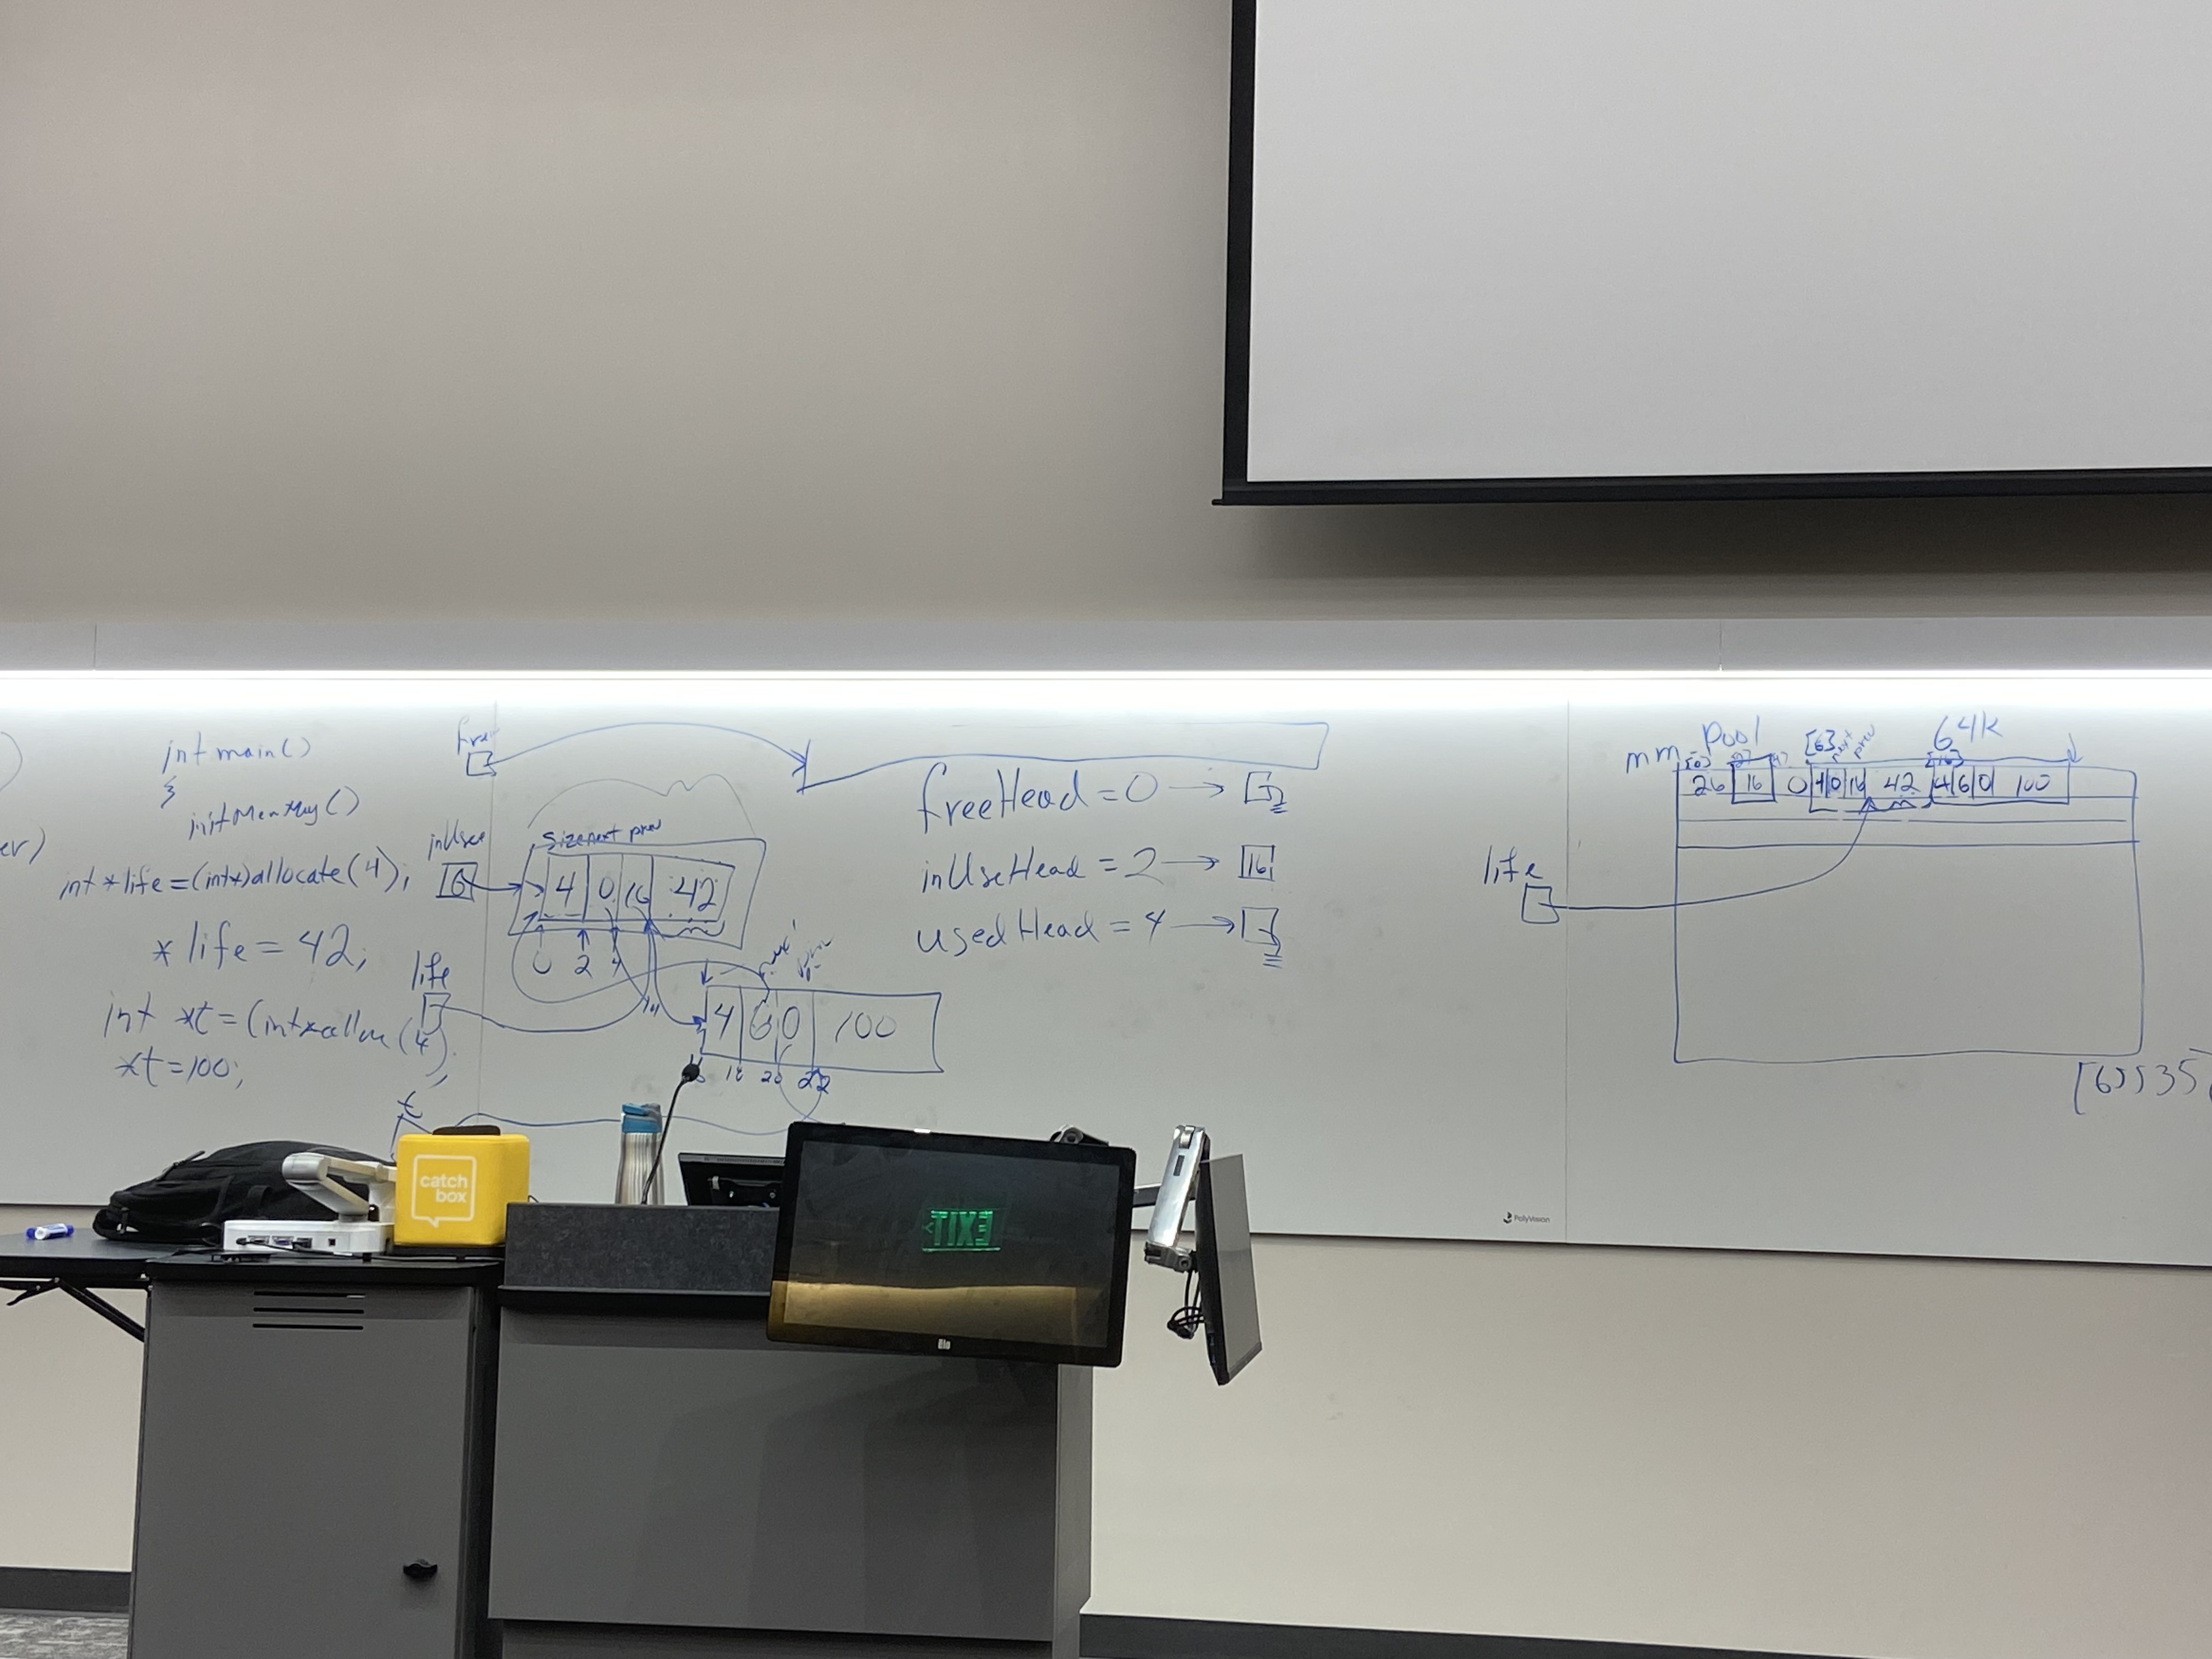 int main()
{
initMemMgy()
er)
int *life=(int*)allocate(4);
*life = 42;
int *t=(int*alloc(4)
;
*t=100;
t
free
inUse
6
Size next prev
4 0 16 42
0 2 4
life
next prev
4 6 0 100
18 20 22
freeHead = 0 →
inUseHead = 2 → 16
usedHead = 4 →
life
pool 64k
mm [0] [2] [4] [6] next prev [16]
26 16 0 4 0 16 42 4 6 0 100
[65535]
PolyVision
catch
box
EXIT
elo